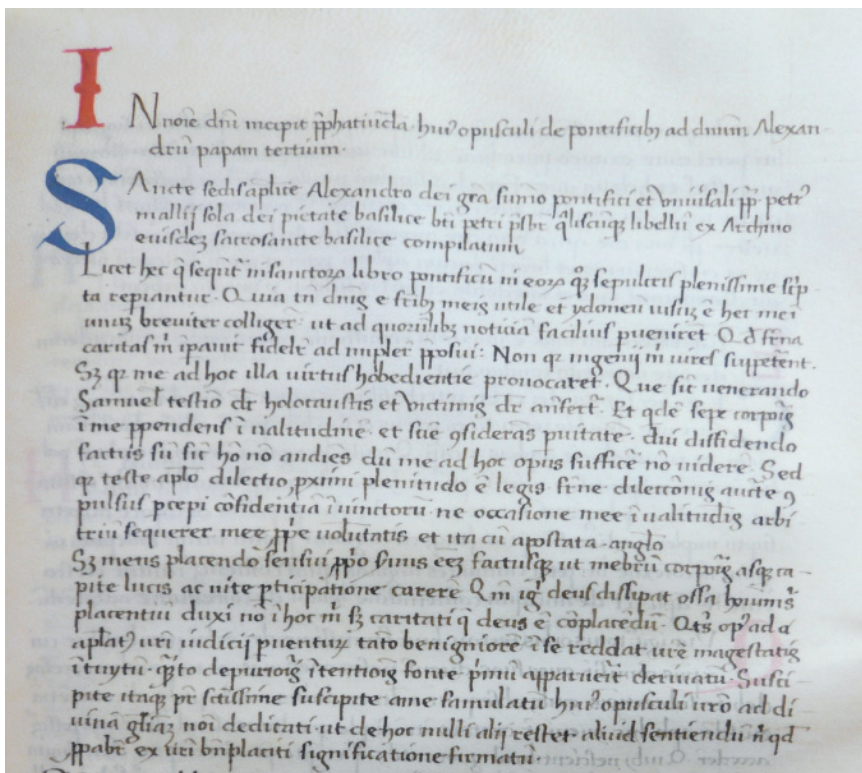 IN noie dñi incipit p̄phatiūcla huiꝰ opusculi de pontificibꝫ ad dnum Alexan
drū papam tertium.
SAncte sedis aplice Alexandro dei gra sūmo pontifici et vniuersali pp petrꝰ
mallij sola dei pietate basilice bti petri p̄sbr q̄liscūqꝫ libellū ex Archiuo
eiusdeꝫ sacrosancte basilice compilatum
Licet hec q̄ sequūt in sanctoꝝ libro pontificū in eoꝝ qꝫ sepulcris plenissime scp
ta repiantur. Quia tn̄ utile et ydoneū uisuꝫ ē hec in ei
unuꝫ breuiter colliger: ut ad quorūlibꝫ notitiā facilius pueniret Qd̄ frna
caritas m̄ ipauit fidelr̄ ad impler p̄posui: Non qꝛ ingenij m̄ uires suppetent.
Sꝫ qꝛ me ad hoc illa uirtus hobedientie prouocaret. Que sic̄ uenerando
Samuel testio dr̄ holocaustis et victimis dr̄ anferr̄. Et qdē sepe corpōis
ī me ppendens ī ualitudinē et scīe ꝯsiderās puitatē. dissidendo
factus sū sic̄ hō nō audies dū me ad hoc opus sufficē nō uiderē. Sed
qꝛ teste aplō dilectio, pximi plenitudo ē legis frne dilectōnis aucte ꝯ
pulsus pcepi cōfidentia ne occasione mee īualitudīs arbi
triū sequerer mee pp̄e uolūtatis et ita cū apostata anglo
Sꝫ meris placendo sensui factusqꝫ ut mēbrū corpōis absqꝫ ca
pite lucis ac uite pticipatione carerē Qm̄ igr̄ deus dissipat ossa hoiuꝫ
placentiū duxi nō ī hoc m̄ sꝫ caritati q̄ deus ē cōplacedū. opꝰ ad a
aplatꝰ uri iudicij puentuꝝ tāto benigniorē ī se reddat ure magestatis
ītuytū. q̄to depurioris ītentiois fonte p̄mū apparuerit deriuatū. Susci
pite itaqꝫ pr̄ sctissime suscipite a me famulatū huiꝰ opusculi uro ad di
uinā gliāꝫ noi dedicati ut de hoc nulli alij restet aliud sentiendū n̄ qd
ppabr̄ ex uri bn̄placiti significatione firmatū.